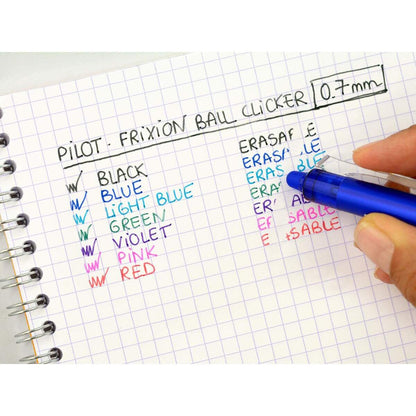 PILOT · FRIXION BALL CLICKER 0.7mm
BLACK
BLUE
LIGHT BLUE
GREEN
VIOLET
PINK
RED
ERASA E
ERAS LE
ERAS BLE
ERA
ER AB
ER SABLE
E SABLE